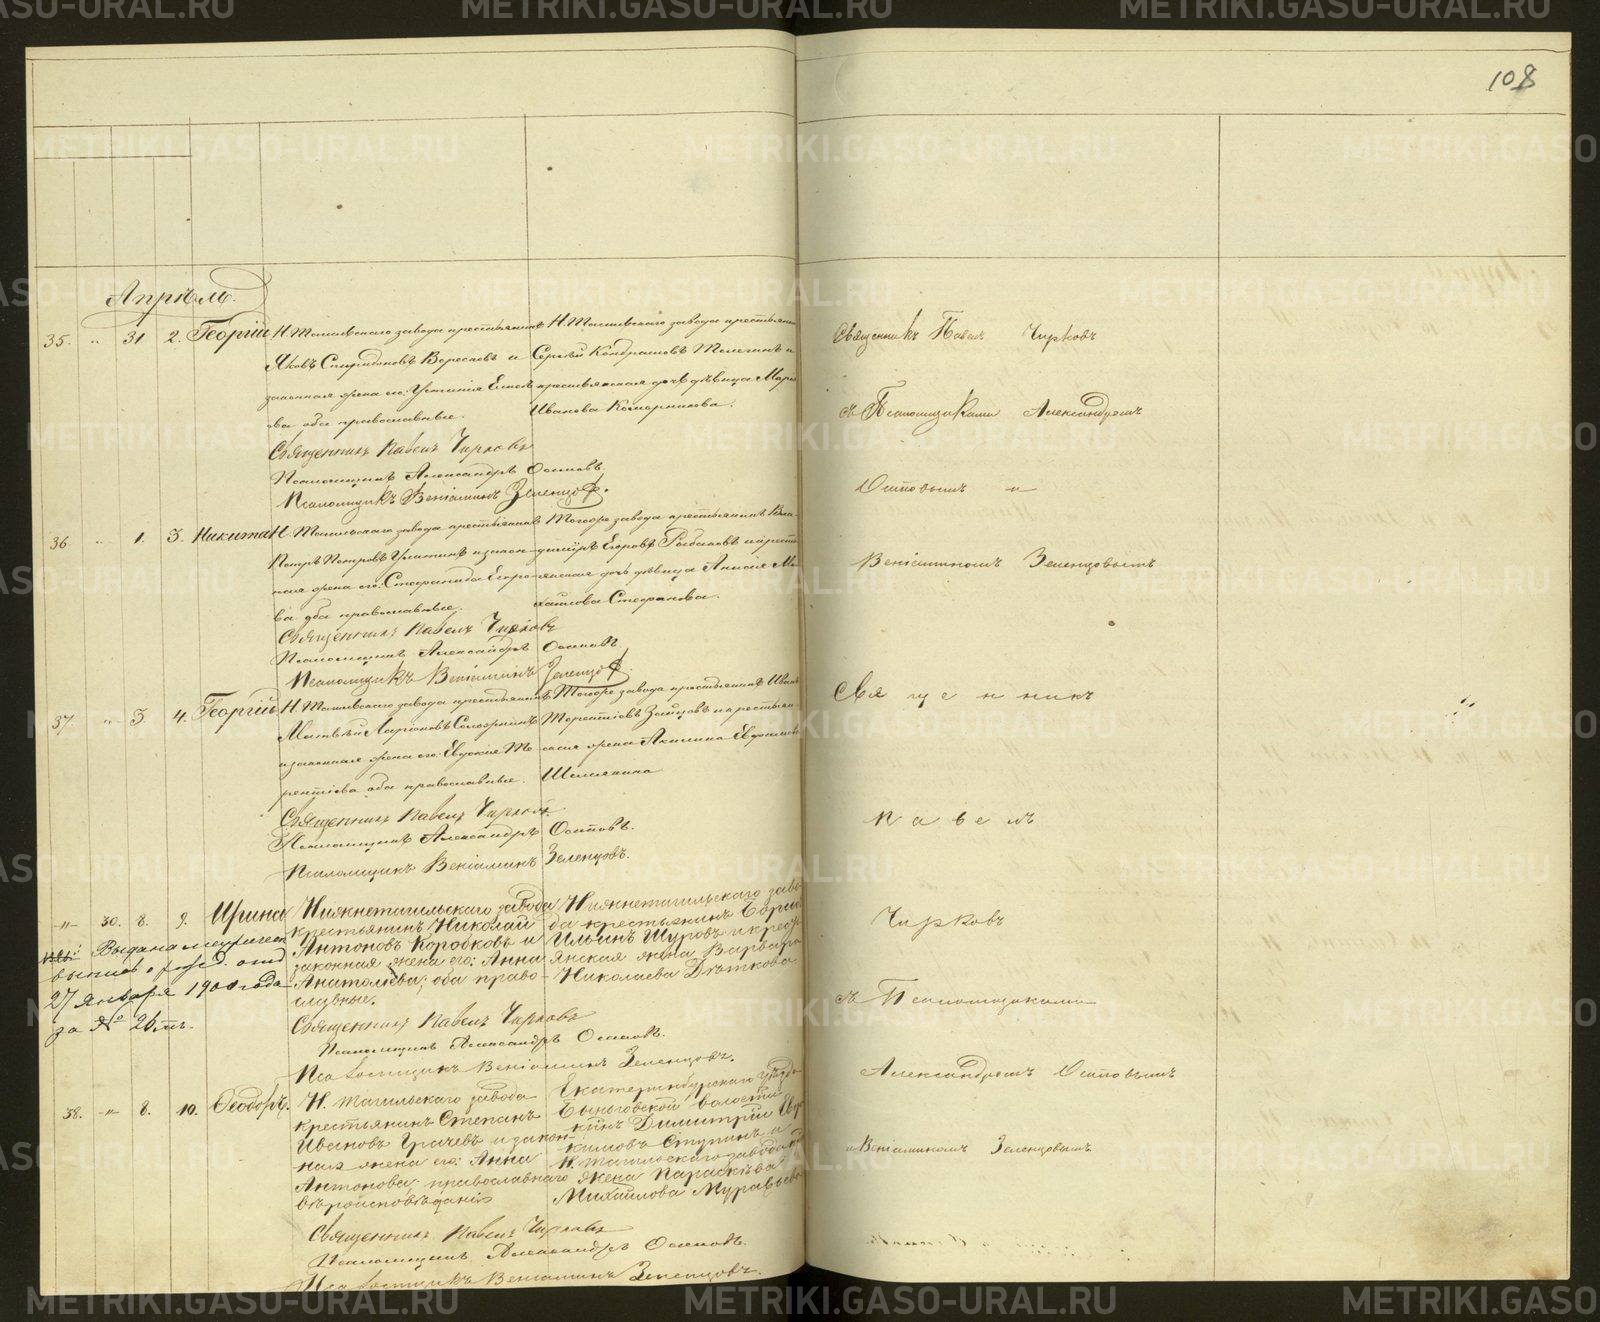 108
Апрѣль.
35. " 31 2. Георгій
Н. Тагильскаго завода крестьянинъ
Яковъ Спиридоновъ и
законная жена его Устинія
ва оба православные.
Н. Тагильскаго завода крестьянинъ
Сергѣй Кондрашовъ Телегинъ и
крестьянская дочь дѣвица Марія
Иванова
Священникъ Павелъ Чирковъ
Псаломщикъ Александръ Осиповъ.
Псаломщикъ Веніаминъ Зеленцовъ.
36 " 1. 3. Никита
Н. Тагильскаго завода крестьянинъ
Петръ Петровъ и закон-
ная жена его Стефанида Егоро-
ва оба православные.
Тогоже завода крестьянинъ Вла-
диміръ Егоровъ Рыбаковъ и кресть-
янская дочь дѣвица Анисія Ми-
хайлова Стефанова.
Священникъ Павелъ Чирковъ
Псаломщикъ Александръ Осиповъ
Псаломщикъ Веніаминъ Зеленцовъ.
37 " 3. 4. Георгій
Н. Тагильскаго завода крестьянинъ
Матвѣй Ларіоновъ
и законная жена его Евдокія Те-
рентіева оба православные.
Тогоже завода крестьянинъ Иванъ
Терентіевъ Зайцовъ и крестьян-
ская жена Акилина
Священникъ Павелъ Чирковъ.
Псаломщикъ Александръ Осиповъ.
Псаломщикъ Веніаминъ Зеленцовъ.
" 30. 8. 9. Ирина
Выдана метрическ
выпись о рожд.
27 января 1900 года
за № 26
Нижнетагильскаго завода
крестьянинъ Николай
Антоновъ Коробковъ и
законная жена его: Анна
Анатоліева; оба право-
славные.
Нижнетагильскаго заво-
да крестьянинъ Борис
Ильинъ Щуровъ и крест
янская жена Варвара
Николаева Дѣткова
Священникъ Павелъ Чирковъ
Псаломщикъ Александръ Осиповъ.
Псаломщикъ Веніаминъ Зеленцовъ.
38. " 8. 10. Ѳеодоръ.
Н. Тагильскаго завода
крестьянинъ Степанъ
Ивановъ Грачевъ и закон-
ная жена его: Анна
Антонова; православнаго
вѣроисповѣданія
Екатеринбургскаго уѣзда
Быньговской волости
Димитрій
Ступинъ и
Н. Тагильскаго завода
жена Параскѣва
Михайлова Муравьева
Священникъ Павелъ Чирковъ
Псаломщикъ Александръ Осиповъ.
Псаломщикъ Веніаминъ Зеленцовъ.
Священникъ Павелъ Чирковъ
съ Псаломщиками Александромъ
Осиповымъ и
Веніаминомъ Зеленцовымъ
Священникъ
Павелъ
Чирковъ
съ Псаломщиками
Александромъ Осиповымъ
и Веніаминомъ Зеленцовымъ
METRIKI.GASO-URAL.RU